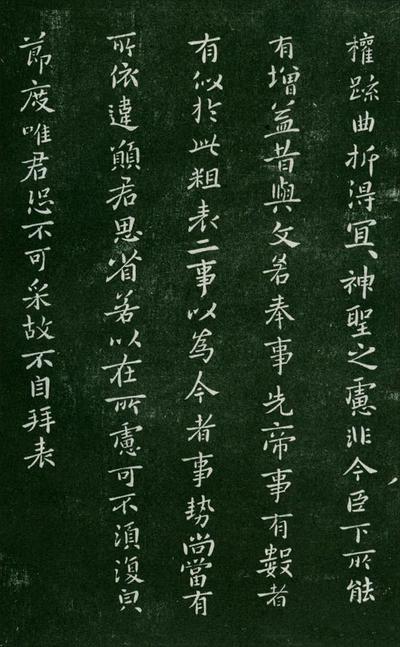 權疏曲折得宜神聖之慮非今臣下所能
有增益昔與文若奉事先帝事有數者
有似於此粗表二事以為今者事勢尚當有
所依違願君思省若以在所慮可不須復皃
節度唯君恐不可采故不自拜表